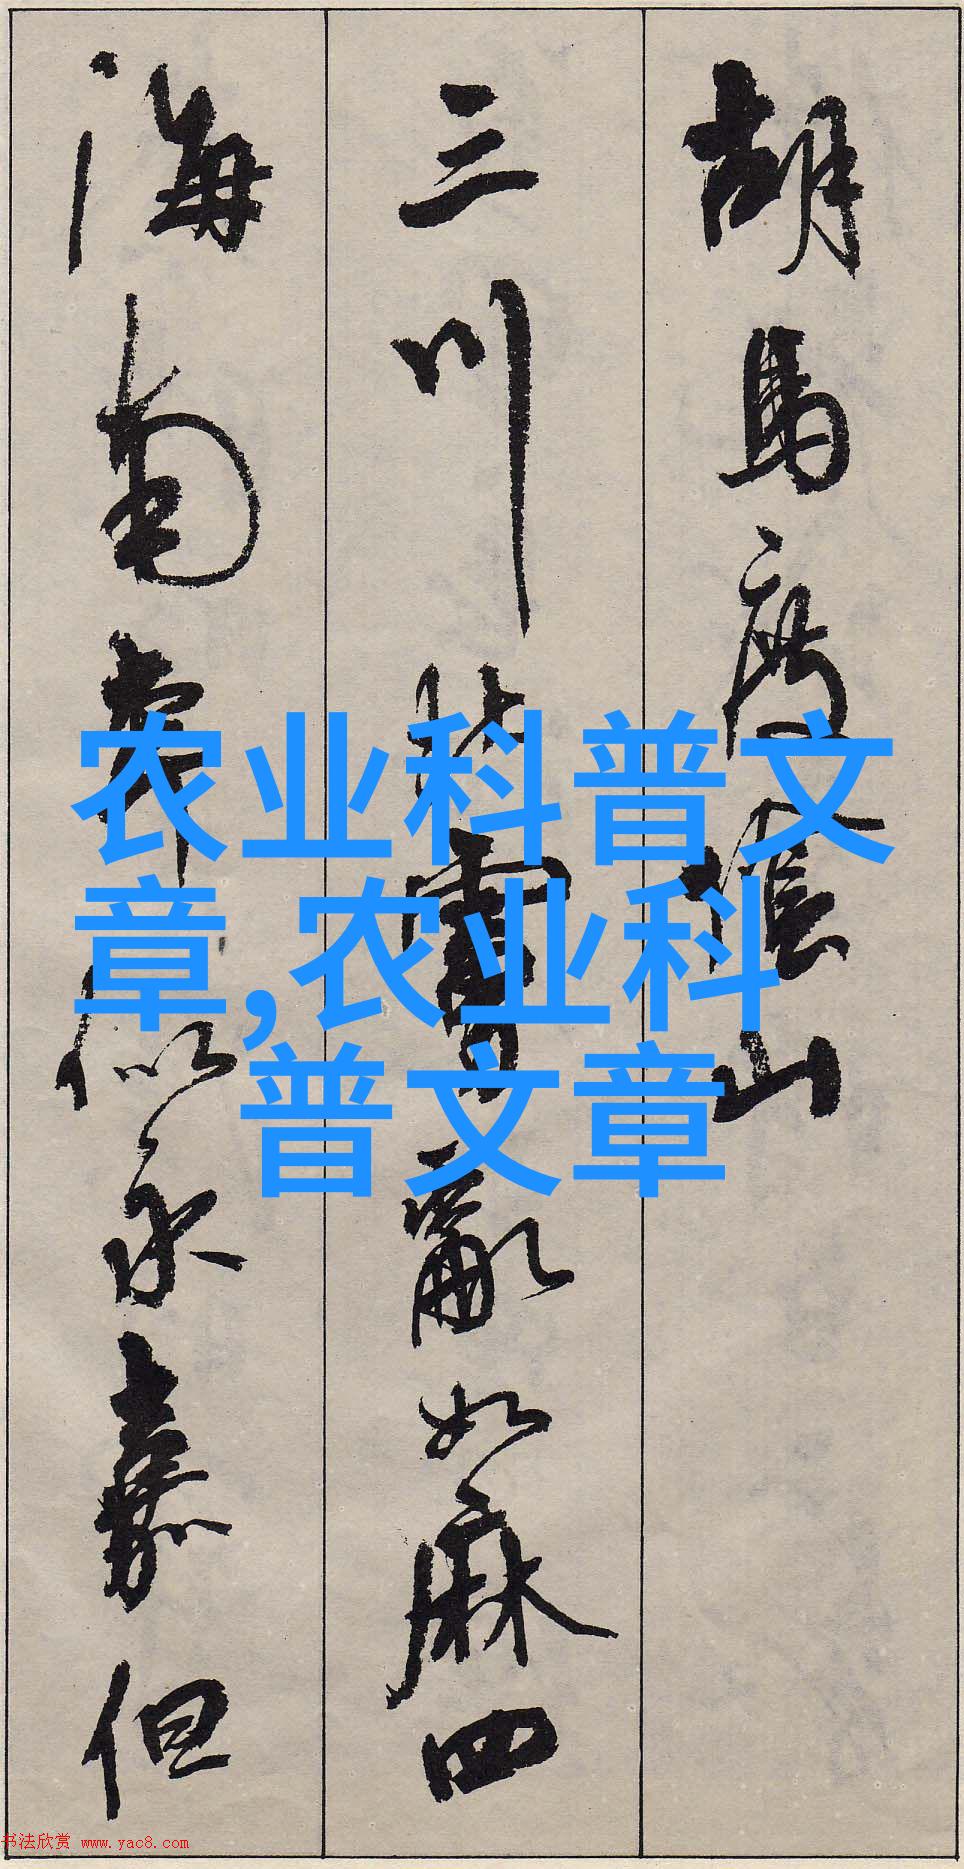 胡馬度陰山
三川北虜亂如麻四
海南奔似永嘉但
农业科普文
章,农业科
普文章
书法欣赏 www.yac8.com